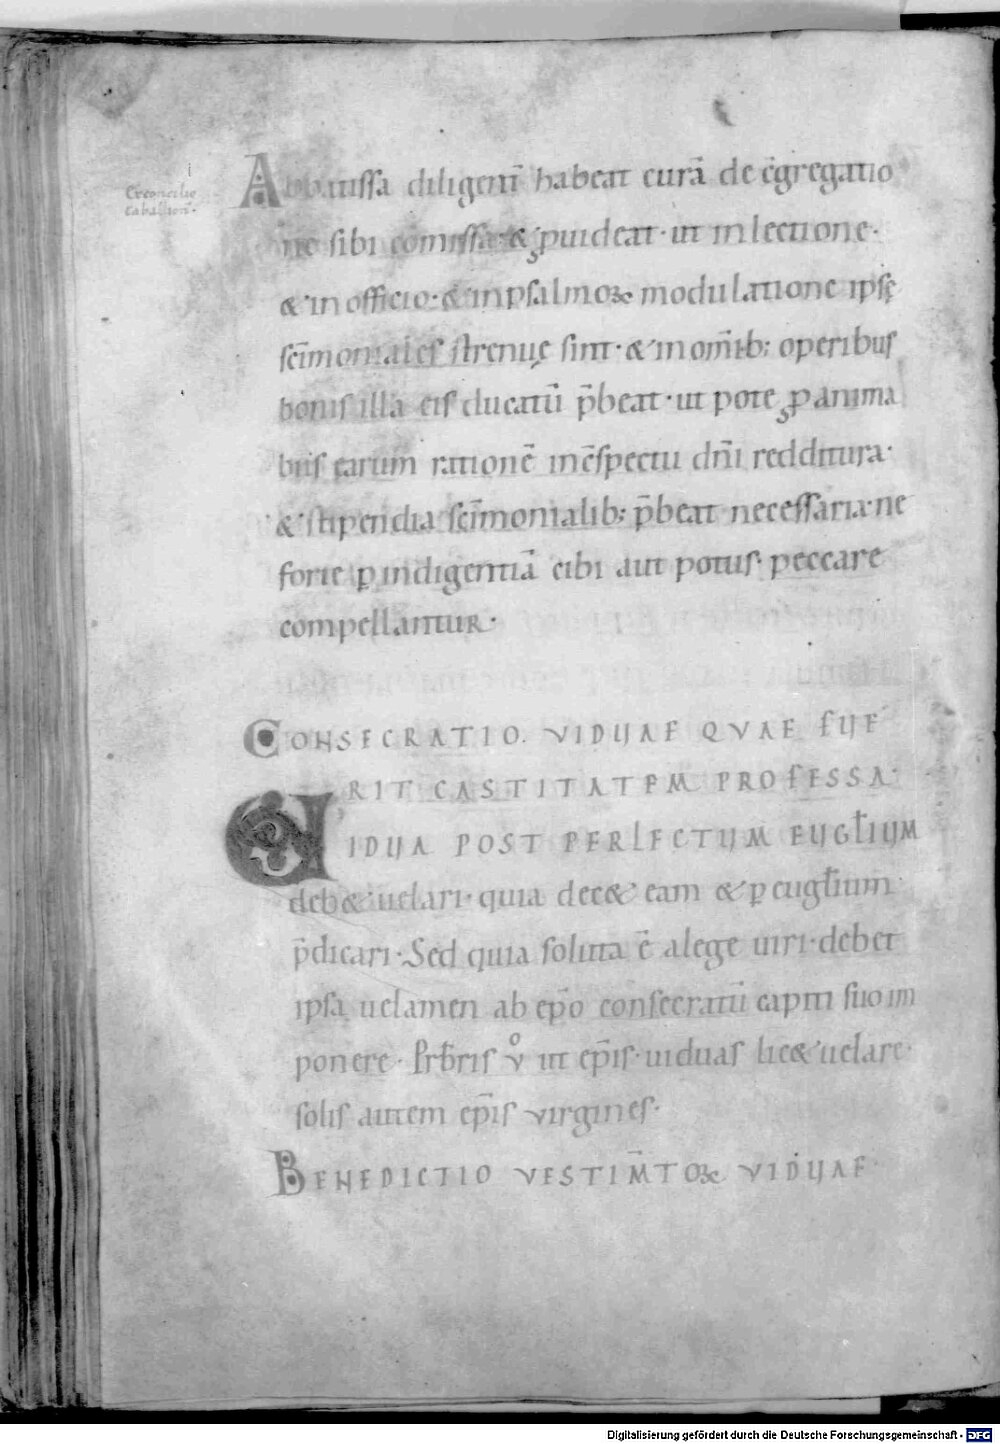 Ex concilio
caballion̄.
Abbatissa diligent̄ habeat curā de c̄gregatio
ne sibi comissa· & ꝓuideat· ut in lectione·
& in officio· & in psalmoꝝ modulatione ipsę
sc̄imoniales strenuę sint· & in om̄ib; operibus
bonis illa eis ducatū p̄beat· ut pote ꝓ anima
bus earum rationē in c̄spectu dn̄i redditura·
& stipendia sc̄imonialib; p̄beat necessaria· ne
forte ꝑ indigentiā cibi aut potus· peccare
compellantur·
CONSECRATIO. VIDUAE QVAE FUE
RIT CASTITATEM PROFESSA·
VIDUA POST PERLECTUM EUGL̄IUM
deb& uelari· quia dec& eam & ꝑ eugl̄ium
p̄dicari· Sed quia soluta ē alege uiri· debet
ipsa uelamen ab ep̄o consecratū capiti suo im
ponere· Prb̄ris vͦ ut ep̄is· uiduas lic& uelare·
solis autem ep̄is virgines·
BENEDICTIO VESTIM̄TOꝝ VIDUAE
Digitalisierung gefördert durch die Deutsche Forschungsgemeinschaft - DFG